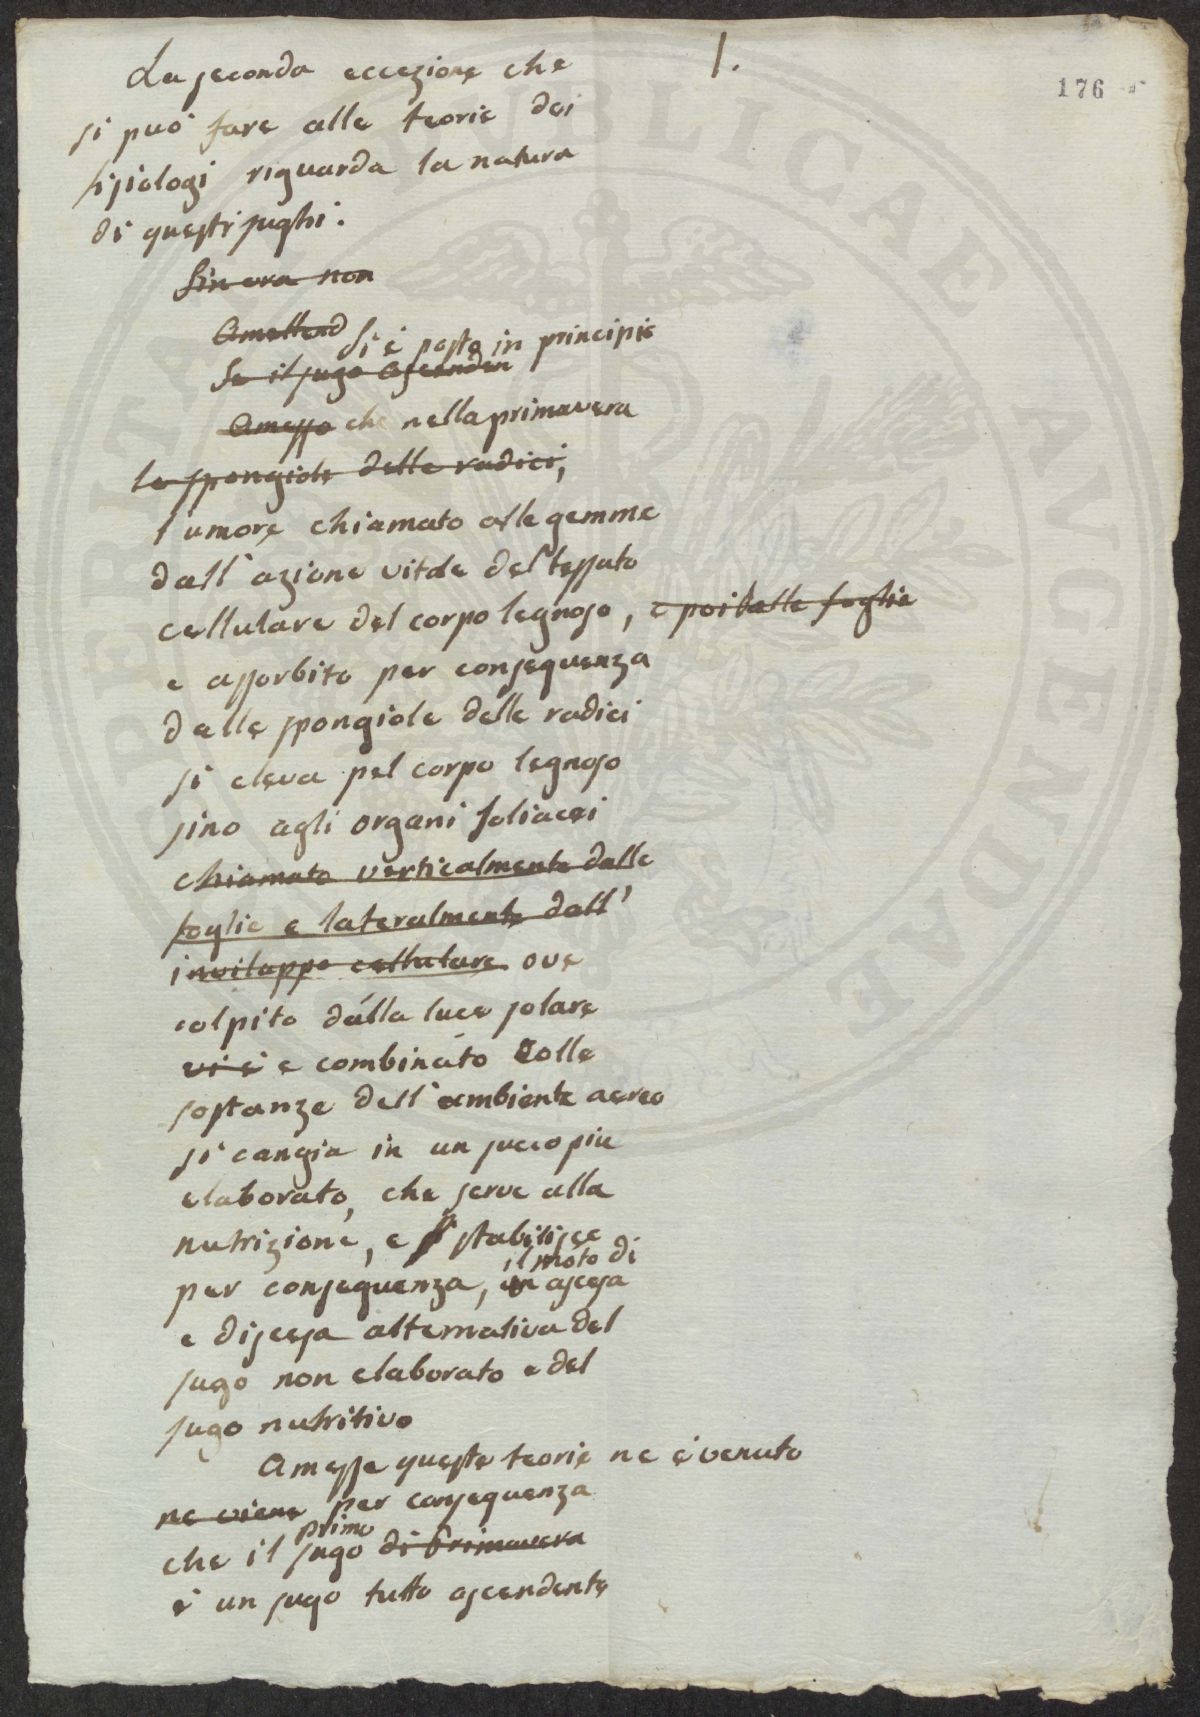 1.
176
La seconda eccezione che
si può fare alle teorie dei
fisiologi riguarda la natura
di questi sughi.
Sin ora non
Amettend
Si è posto in principio
Se il sugo ascenden
Amesso che nella primavera
le spongiole delle radici,
l'umore chiamato alle gemme
dall'azione vitale del tessuto
cellulare del corpo legnoso, e poi dalle foglie
e assorbito per conseguenza
dalle spongiole delle radici
si eleva pel corpo legnoso
sino agli organi foliacei
chiamato verticalmente dalle
foglie e lateralmente dall'
inviluppo cellulare ove
colpito dalla luce solare
vi è e combinato colle
sostanze dell'ambiente aereo
si cangia in un succo più
elaborato, che serve alla
nutrizione, e stabilisce
il moto di
per conseguenza, un ascesa
e discesa alternativa del
sugo non elaborato e del
sugo nutritivo
Amesse queste teorie ne è venuto
ne viene per conseguenza
primo
che il sugo di Primavera
è un sugo tutto ascendente